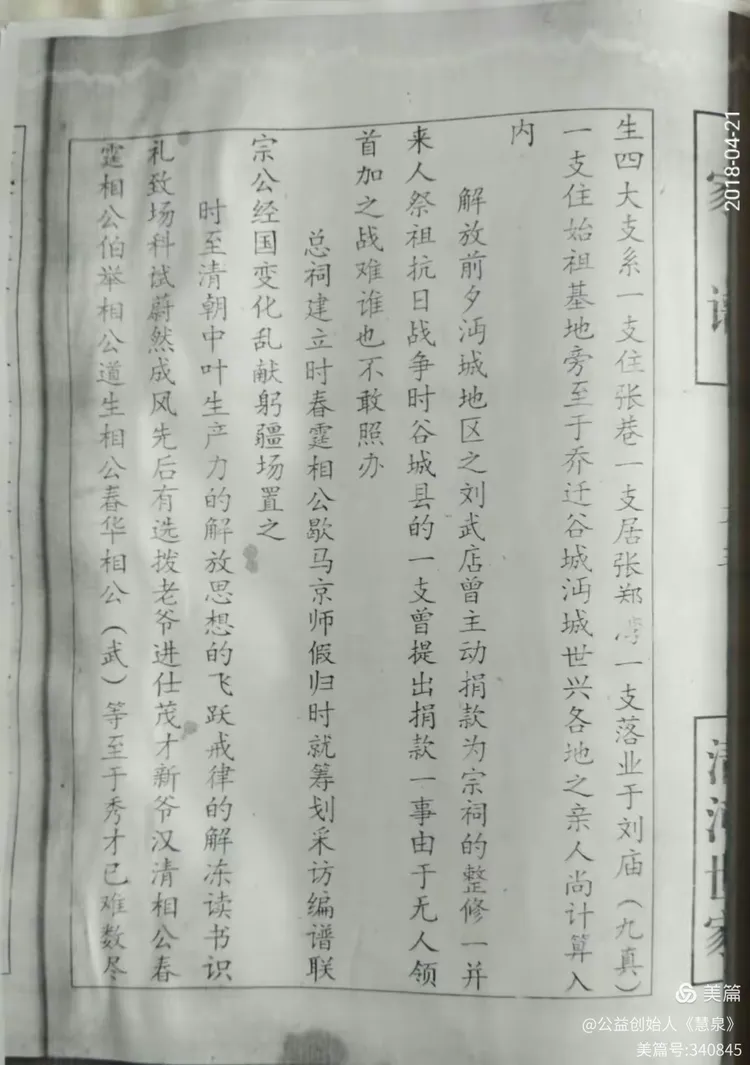 家谱
清河世家
生四大支系一支住张巷一支居张郑湾一支落业于刘庙（九真）
一支住始祖基地旁至于乔迁谷城沔城世兴各地之亲人尚计算入
内
解放前夕沔城地区之刘武店曾主动捐款为宗祠的整修一并
来人祭祖抗日战争时谷城县的一支曾提出捐款一事由于无人领
首加之战难谁也不敢照办
总祠建立时春霆相公歇马京师假归时就筹划采访编谱联
宗公经国变化乱献躬疆场置之
时至清朝中叶生产力的解放思想的飞跃戒律的解冻读书识
礼致场科试蔚然成风先后有选拨老爷进仕茂才新爷汉清相公春
霆相公伯举相公道生相公春华相公（武）等至于秀才已难数尽
2018-04-21
美篇
@公益创始人《慧泉》
美篇号:340845